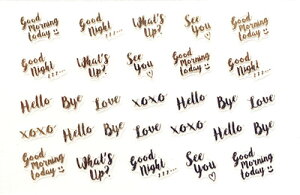 Good Morning today
Good Night zzz...
What's Up?
See You
Good Morning today
Good Morning today
What's Up?
See You
Good Night zzz...
Good Morning today
Hello Bye Love xoxo Hello Bye Love
xoxo Hello Bye Love Hello Bye xoxo
Good Morning today
What's Up?
Good Night zzz...
See You
Good Morning today